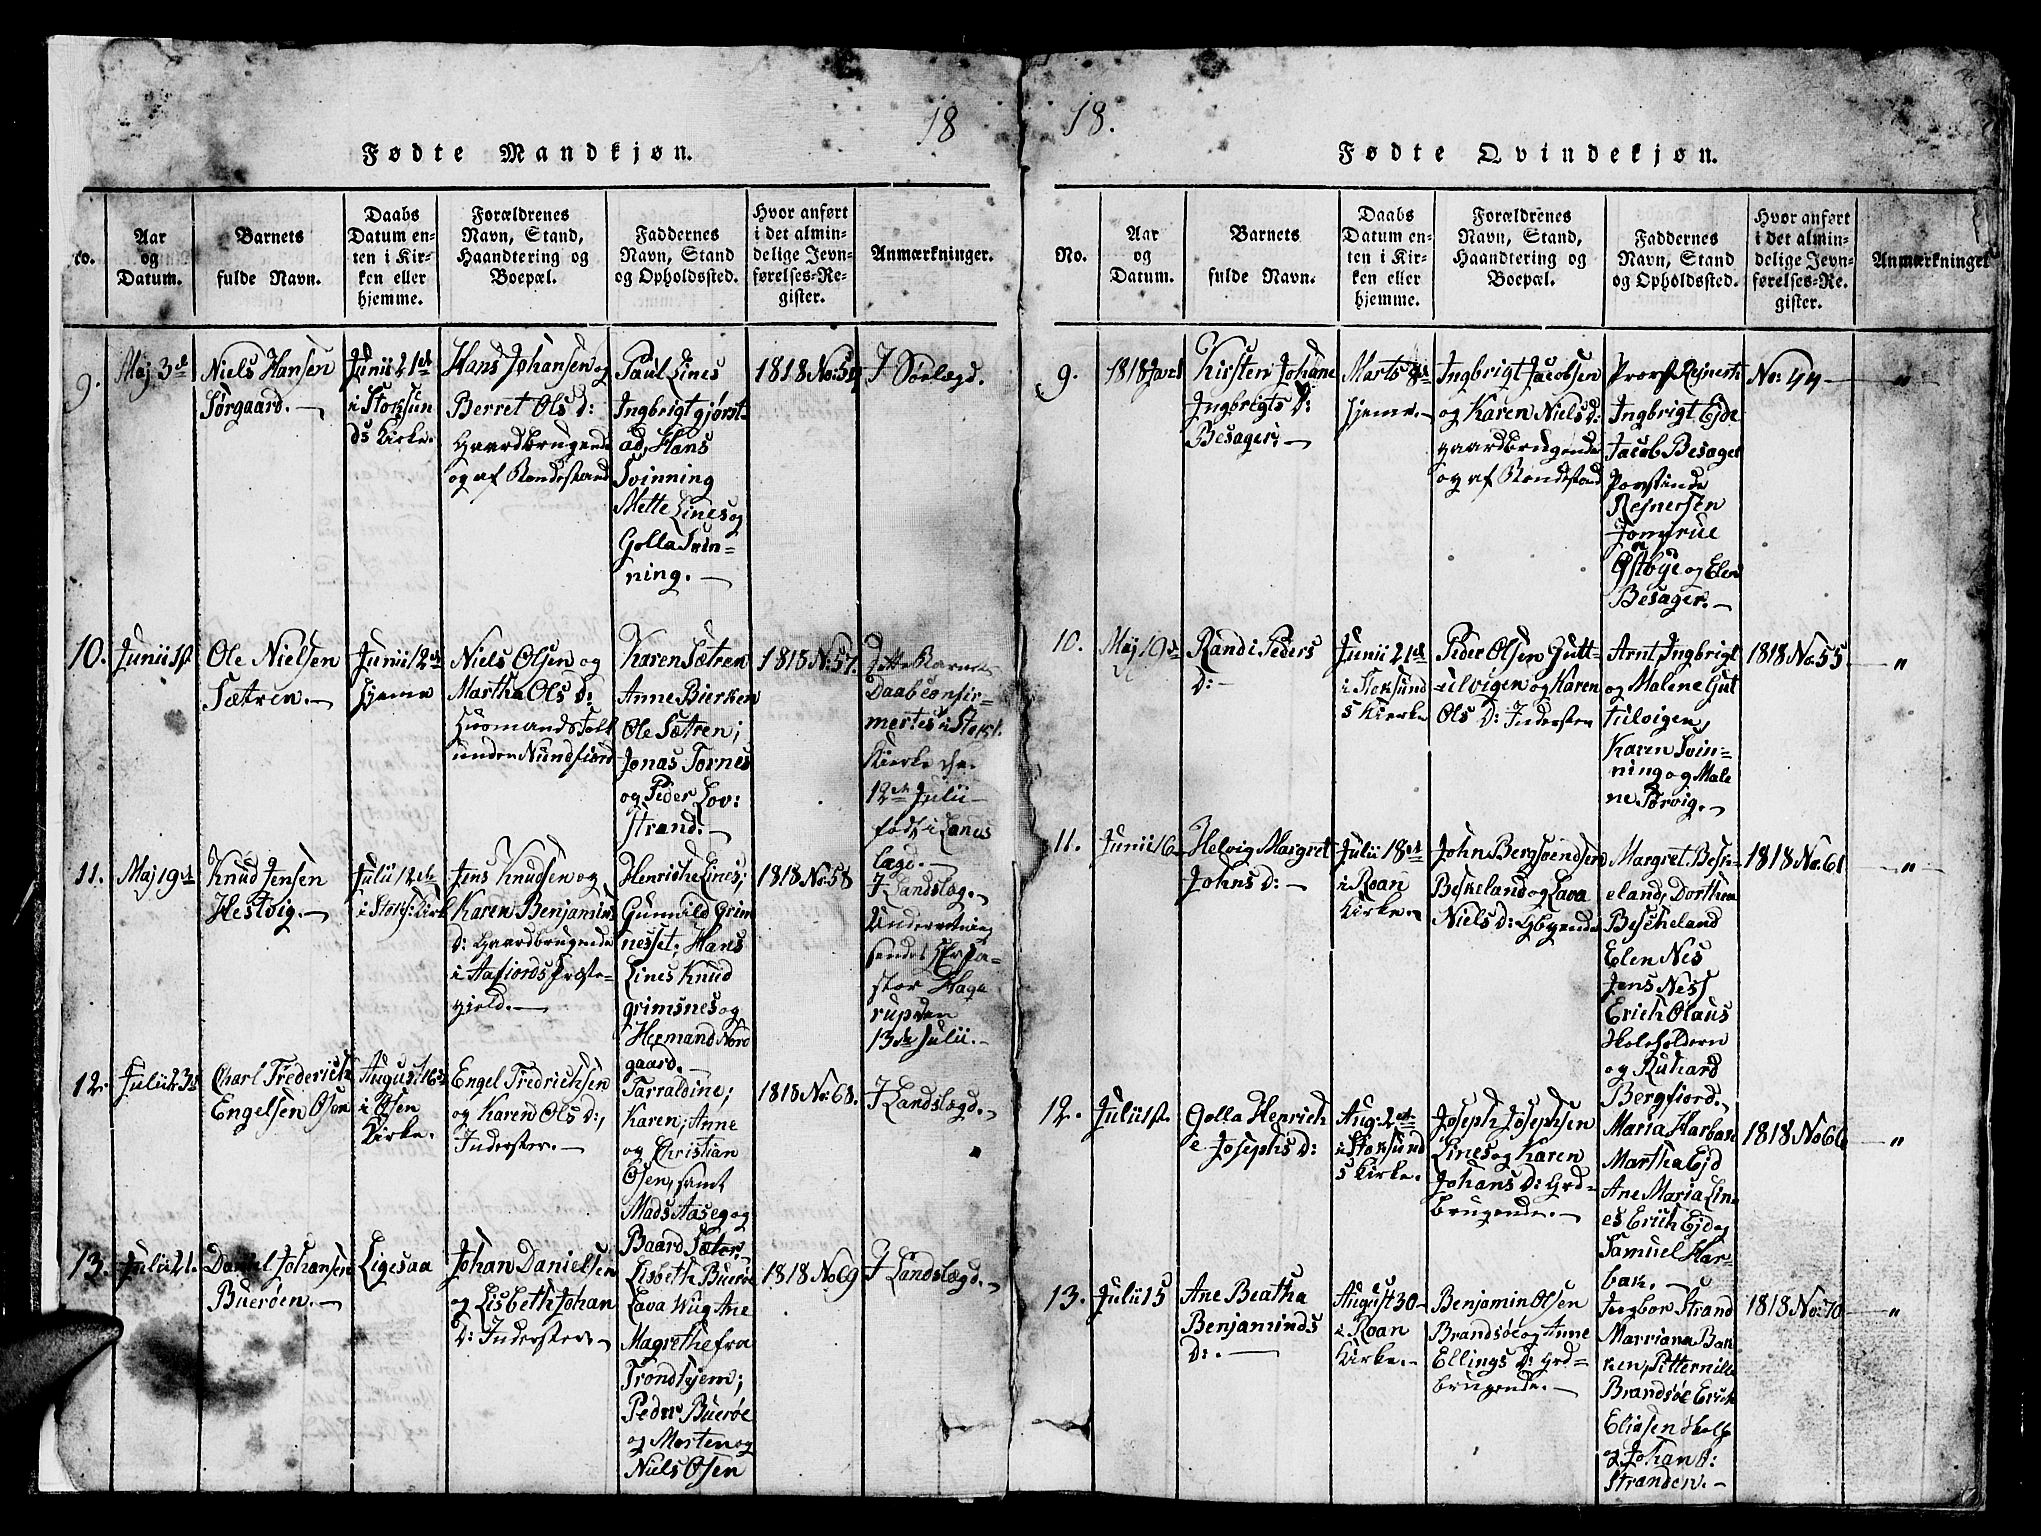 18
Fødte Mandkjøn.
Aar
og
Datum.
Barnets
fulde Navn.
Daabs
Datum en-
ten i Kir-
ken eller
hjemme.
Forældrenes
Navn, Stand,
Haandtering og
Boepæl.
Faddernes
Navn, Stand
og Opholdssted.
Hvor anført
i det almin-
delige Jevn-
førelses-Re-
gister.
Anmærkninger.
9.
Maj 3de
Niels Hansen
Sørgaard.
Junii 21de
i Stoksun
ds Kirke.
Hans Johansen og
Berret Ols D:
Gaardbrugende
og af Bondestand
Paul Lines
Ingbrigt gjørst
ad, Hans
Svinning
Mette Lines og
Golla Svin-
ning.
1818 No:
I Sørlægd.
10.
Junii 1st
Ole Nielsen
Sætren.
Junii 12te
hjeme
Niels Olsen og
Martha Ols D:
Huusmandsfolk
under Nundfiord
Karen Sætren
Anne Bierken
Ole Sætren;
Jonas Tornes
og Peder Lov:
strand.
1818 No: 57.
Daab confir-
mertes i Stoks.
Kierke den
12te Julii
født i Lands
lægd.
11.
Maj 19de
Knud Jensen
Hestvig.
Julii 12te
i Stoks: Kirk
Jens Knudsen og
Karen Benjamins
D: Gaardbrugende
i Aafiords Præste-
gjeld.
Henriche Lines;
Gunnild Grim
nesset; Hans
Lines Knud
grimsnes og
Hermand Nord
gaard.
1818 No: 58
I Landslæg.
Underretning
sendes Hr Pa-
stor Hage
rup den
13de Julii.
12.
Julii
Charl Frederich
Engelsen Osen
August 16de
i Osen
Kirke.
Engel Fredrichsen
og Karen Ols D:,
Inderster.
Tarraldine;
Karen; Anne
og Christian
Osen, samt
Mads Aaseg og
Baard Sæter.
1818 No: 68.
I Landslægd.
13.
Julii 21.
Daniel Johansen
Buerøen.
Ligesaa
Johan Danielsen
og Lisbeth Johan
D: Inderster.
Lisbeth Buerøe
Lava Wug Ane
Magrethe fra
Trondhjem;
Peder Buerøe
og Morten og
Niels Osen
1818 No 69
I Landslægd.
18.
Fødte Qvindekjøn.
No.
Aar
og
Datum.
Barnets
fulde Navn.
Daabs
Datum en-
ten i Kir-
ken eller
hjemme.
Forældrenes
Navn, Stand,
Haandtering og
Boepæl.
Faddernes
Navn, Stand
og Opholdssted.
Hvor anført
i det almin-
delige Jevn-
førelses-Re-
gister.
Anmærkninger
9.
1818
Kirsten Johane
Ingbrigts D:
Besager;
Marts 8de
hjeme.
Ingbrigt Jacobsen
og Karen Niels D:
gaardbrugende
og af Bondestand
Provst Rejnert
Ingbrigt Ejde
Jacob Besager
Provstinde
Rejnersen
Jomfrue
Østbye og Elen
Besager.
No: 44
"
10.
Maj 19de
Randi Peders
D:
Junii 21de
i Stoksund
s Kierke
Peder Olsen Gutt-
elvigen og Karen
Ols D: Inderster
Arnt, Ingbrigt
og Malene Gut
Tulvigen,
Karen Svin-
ning og Male
ne Sørvig.
1818 No: 55.
"
11.
Junii 16
Helvig Margret
Johns D:
Julii 18de
i Roan
Kirke.
John Bergsvendsen
Beskeland og Lava
Niels D: Gbgende
Margret Besk-
eland, Dorthea
Bescheland
Elen Nes
Jens Ness
Erich Olaus
Skoleholdern
og Richard
Bergfiord.
1818 No: 61
"
12.
Julii 1st.
Golla Henrich
e Josephs D:
Aug: 2de
i Stoksund
s Kirke.
Joseph Josephsen
Lines og Karen
Johans D: Grd-
brugende.
Maria Harbak
Martha Ejd
Ane Maria Lin
es Erich Ejd og
Samuel Har-
bak.
1818 No 66
"
13.
Julii 15
Ane Beatha
Benjaminds
D:
August 30
i Roan
Kirke.
Benjamin Olsen
Brandsøe og Anne
Ellings D: Grd-
brugende.
Ingbor Strand
Marriana Bak
ken, Pitternille
Brandsøe Erich
Eliasen Skolh
og Johan O:
Stranden.
1818 No: 70
"